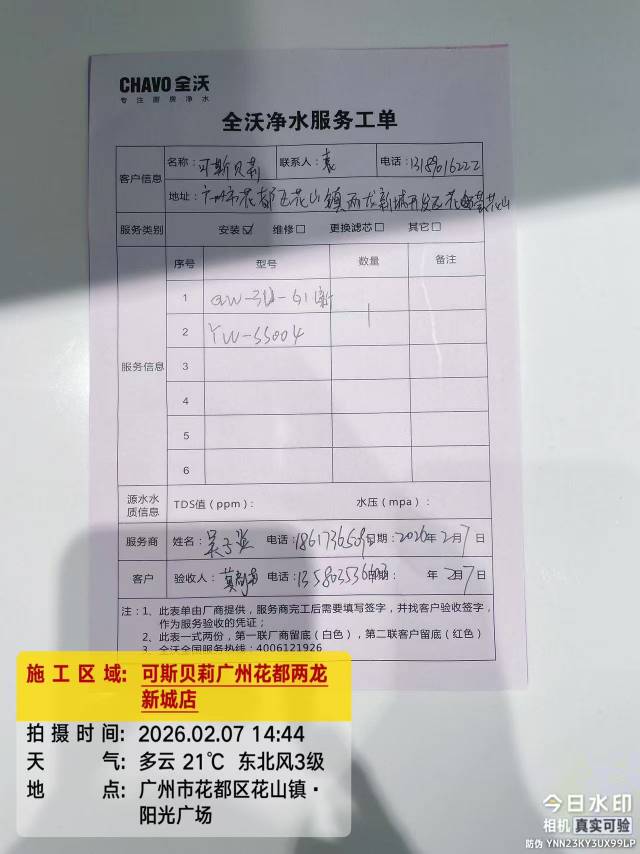 CHAVO 全沃
专注厨房净水
全沃净水服务工单
客户信息 名称：可斯贝莉 联系人：袁 电话：13159016222
地址：广州市花都区花山镇两龙新城开发区
服务类别 安装☑ 维修□ 更换滤芯□ 其它□
序号 型号 数量 备注
服务信息
1
2 YW-SS004 1
3
4
5
6
源水水质信息 TDS值（ppm）： 水压（mpa）：
服务商 姓名： 电话： 日期：2026年2月7日
客户 验收人： 电话： 日期： 年2月7日
注：1、此表单由厂商提供，服务商完工后需要填写签字，并找客户验收签字，
作为服务验收的凭证；
2、此表一式两份，第一联厂商留底（白色），第二联客户留底（红色）
3、全沃全国服务热线：4006121926
施工区域：可斯贝莉广州花都两龙
新城店
拍摄时间：2026.02.07 14:44
天气：多云 21℃ 东北风3级
地点：广州市花都区花山镇·
阳光广场
今日水印
相机 真实可验
防伪 YNN23KY3UX99LP